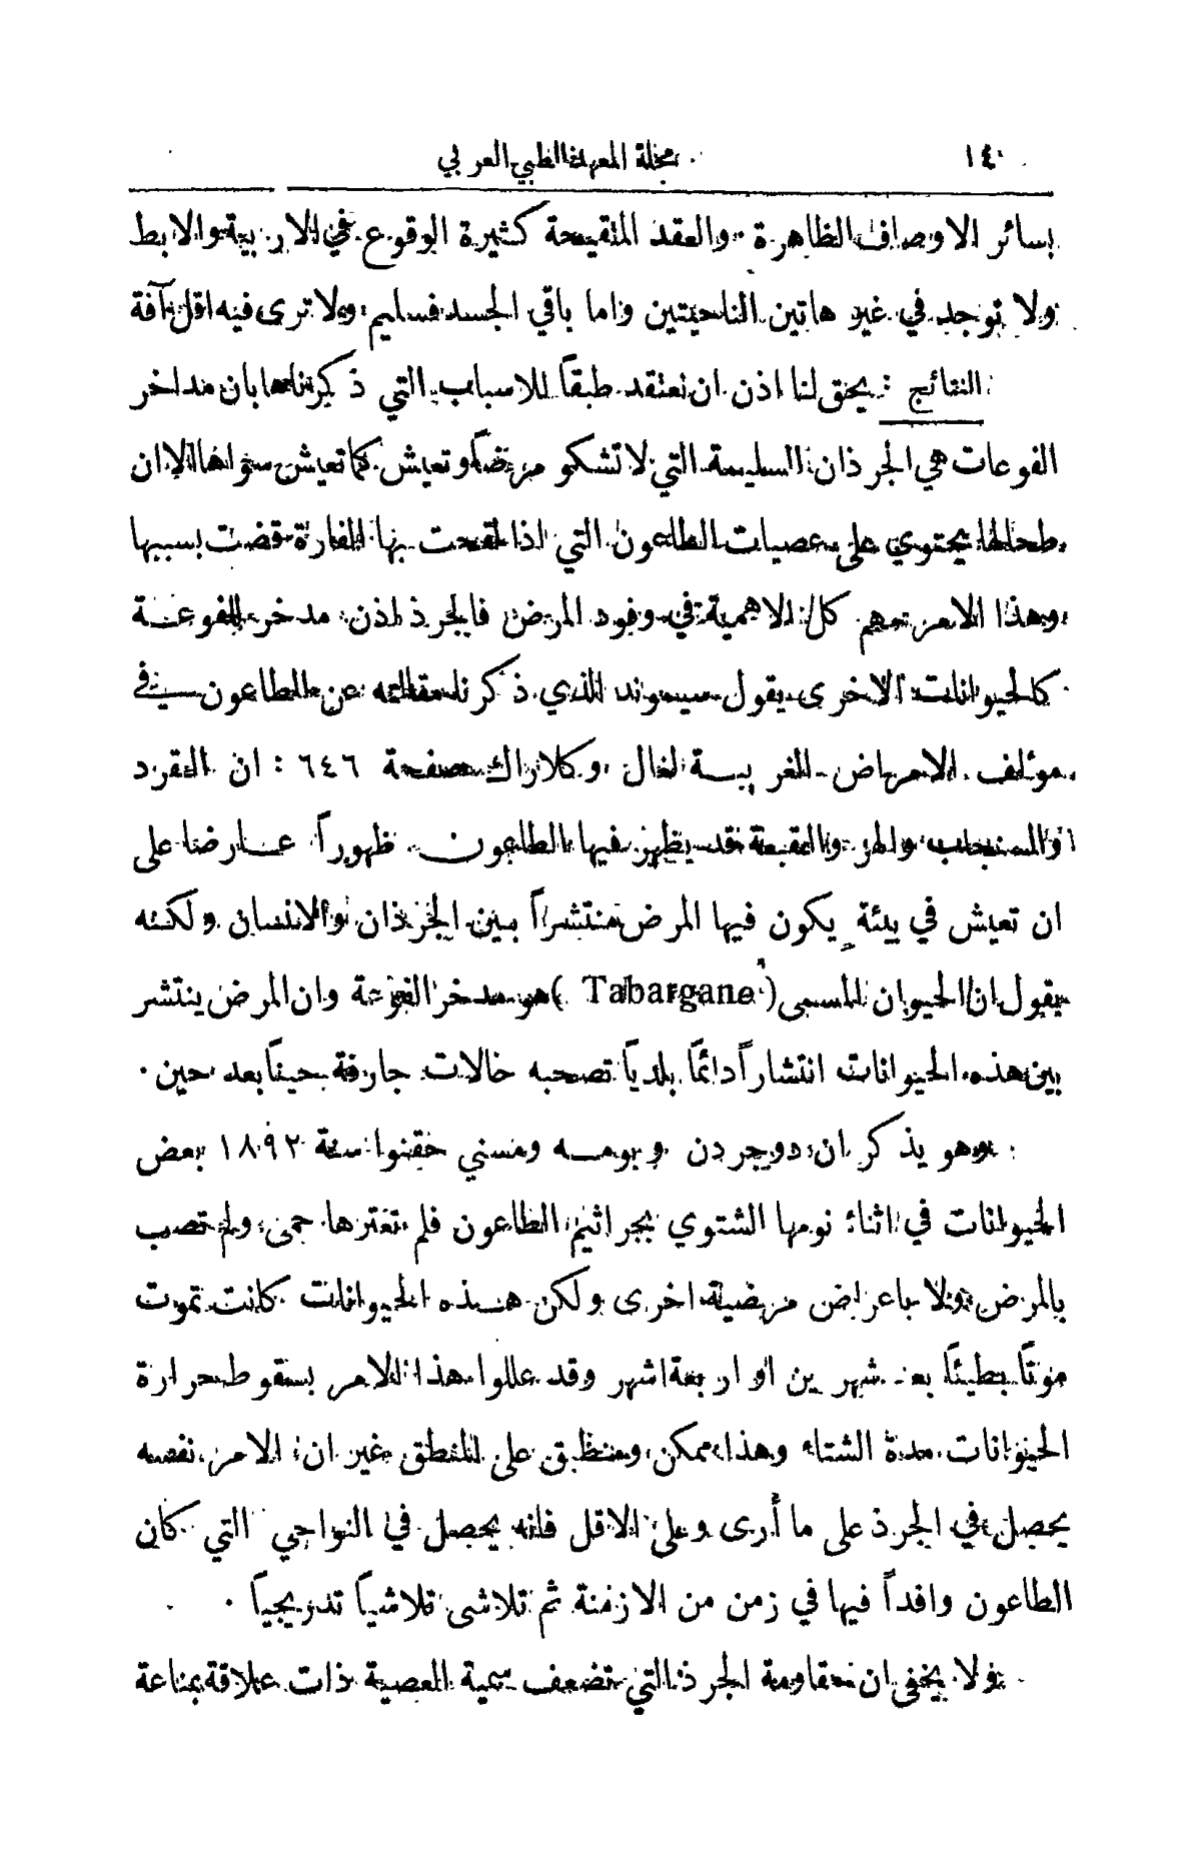 ١٤٠ مجلة المعهد الطبي العربي
بسائر الاوصاف الظاهرة والعقد المتقيحة كثيرة الوقوع في الاربية والابط
ولا توجد في غير هاتين الناحيتين واما باقي الجسد فسليم ولا ترى فيه اقل آفة
النتائج : يحق لنا اذن ان نعتقد طبقاً للاسباب التي ذكرناها بان مداخر
الفوعات هي الجرذان السليمة التي لا تشكو مرضاً وتعيش كما تعيش سواها الا ان
طحالها يحتوي على عصيات الطاعون التي اذا لقحت بها الفارة قضت بسببها
وهذا الامر مهم كل الاهمية في وفود المرض فالجرذ اذن مدخر للفوعة
كالحيوانات الاخرى يقول سيموند الذي ذكرنا مقالته عن الطاعون في
مؤلف الامراض الغريبة لغال وكلاراك صفحة ٦٤٦ : ان القرد
والسنجاب والهر قد يظهر فيها الطاعون ظهوراً عارضا على
ان تعيش في بيئة يكون فيها المرض منتشراً بين الجرذان والانسان ولكنه
يقول ان الحيوان المسمى ( Tabargane ) هو مدخر الفوعة وان المرض ينتشر
بين هذه الحيوانات انتشاراً دائماً بلدياً تصحبه حالات جارفة حيناً بعد حين .
وهو يذكر ان دوجردن وبومه ومسني حقنوا سنة ١٨٩٢ بعض
الحيوانات في اثناء نومها الشتوي بجراثيم الطاعون فلم تعترها حمى ولم تصب
بالمرض ولا باعراض مرضية اخرى ولكن هذه الحيوانات كانت تموت
موتاً بطيئاً بعد شهرين او اربعة اشهر وقد عللوا هذا الامر بسقوط حرارة
الحيوانات مدة الشتاء وهذا ممكن ومنطبق على المنطق غير ان الامر نفسه
يحصل في الجرذ على ما أرى وعلى الاقل فانه يحصل في النواحي التي كان
الطاعون وافداً فيها في زمن من الازمنة ثم تلاشى تلاشياً تدريجياً .
ولا يخفى ان مقاومة الجرذ التي تضعف سمية العصية ذات علاقة بمناعة